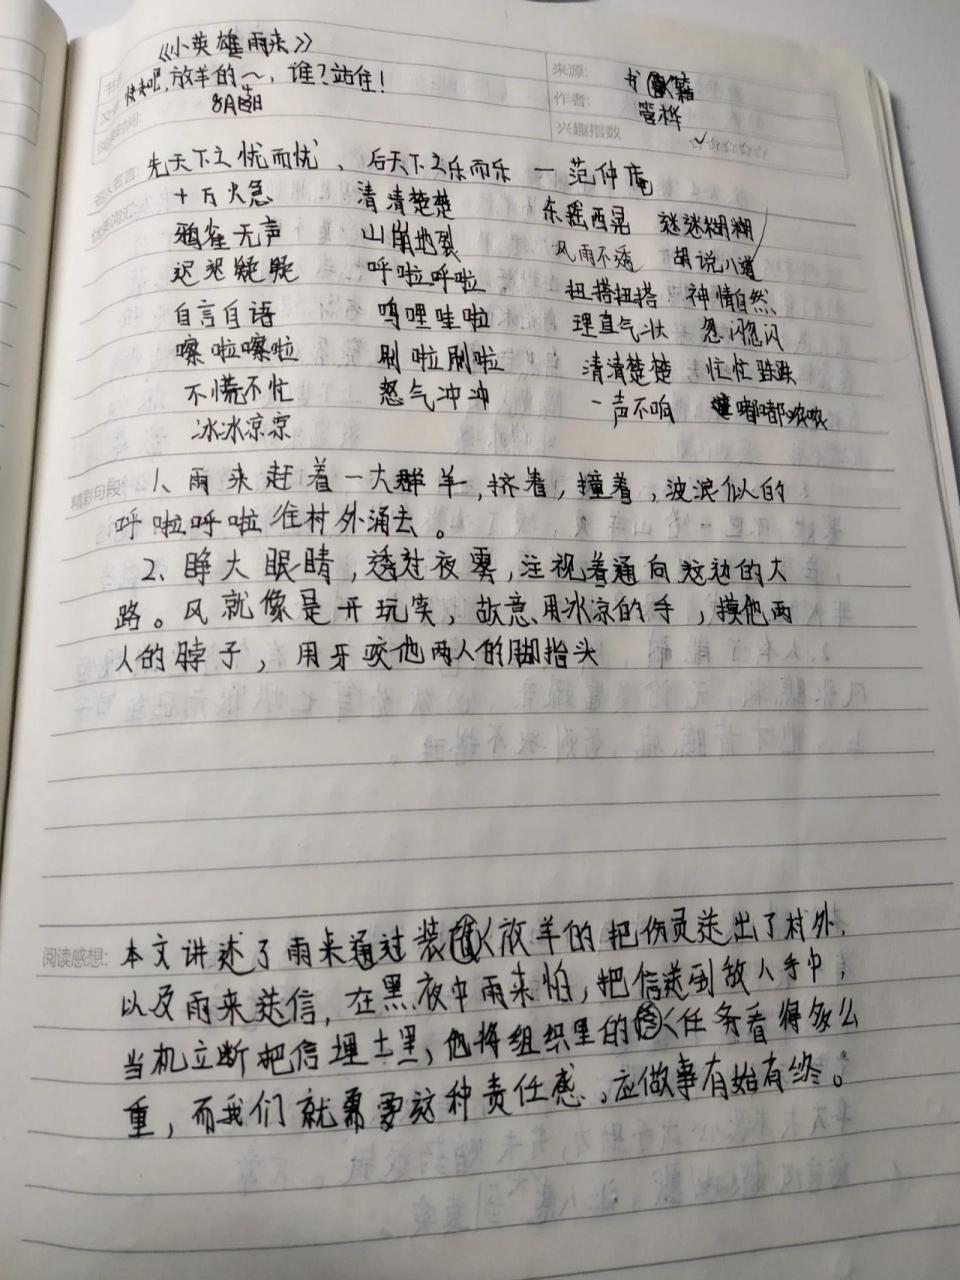 《小英雄雨来》
快来吧，放羊的～，谁？站住！
来源: 书籍
作者: 管桦
8月
兴趣指数 ✓☆☆☆☆☆
名人名言: 先天下之忧而忧、后天下之乐而乐 — 范仲庵
十万火急 清清楚楚 东摇西晃 迷迷糊糊
鸦雀无声 山崩地裂 风雨不透 胡说八道
迟迟疑疑 呼啦呼啦 扭搭扭搭 神情自然
自言自语 呜哩哇啦 理直气壮 忽闪忽闪
嚓啦嚓啦 刷啦刷啦 清清楚楚 忙忙跌跌
不慌不忙 怒气冲冲 一声不响 嘟嘟哝哝
冰冰凉凉
精彩句段: 1、雨来赶着一大群羊，挤着，撞着，波浪似的
呼啦呼啦往村外涌去。
2、睁大眼睛，透过夜雾，注视着通向这边的大
路。风就像是开玩笑，故意用冰凉的手，摸他两
人的脖子，用牙咬他两人的脚指头
阅读感想: 本文讲述了雨来通过装放羊的把伤员送出了村外，
以及雨来送信，在黑夜中雨来怕，把信送到敌人手中，
当机立断把信埋土里，他将组织里的任务看得多么
重，而我们就需要这种责任感。应做事有始有终。